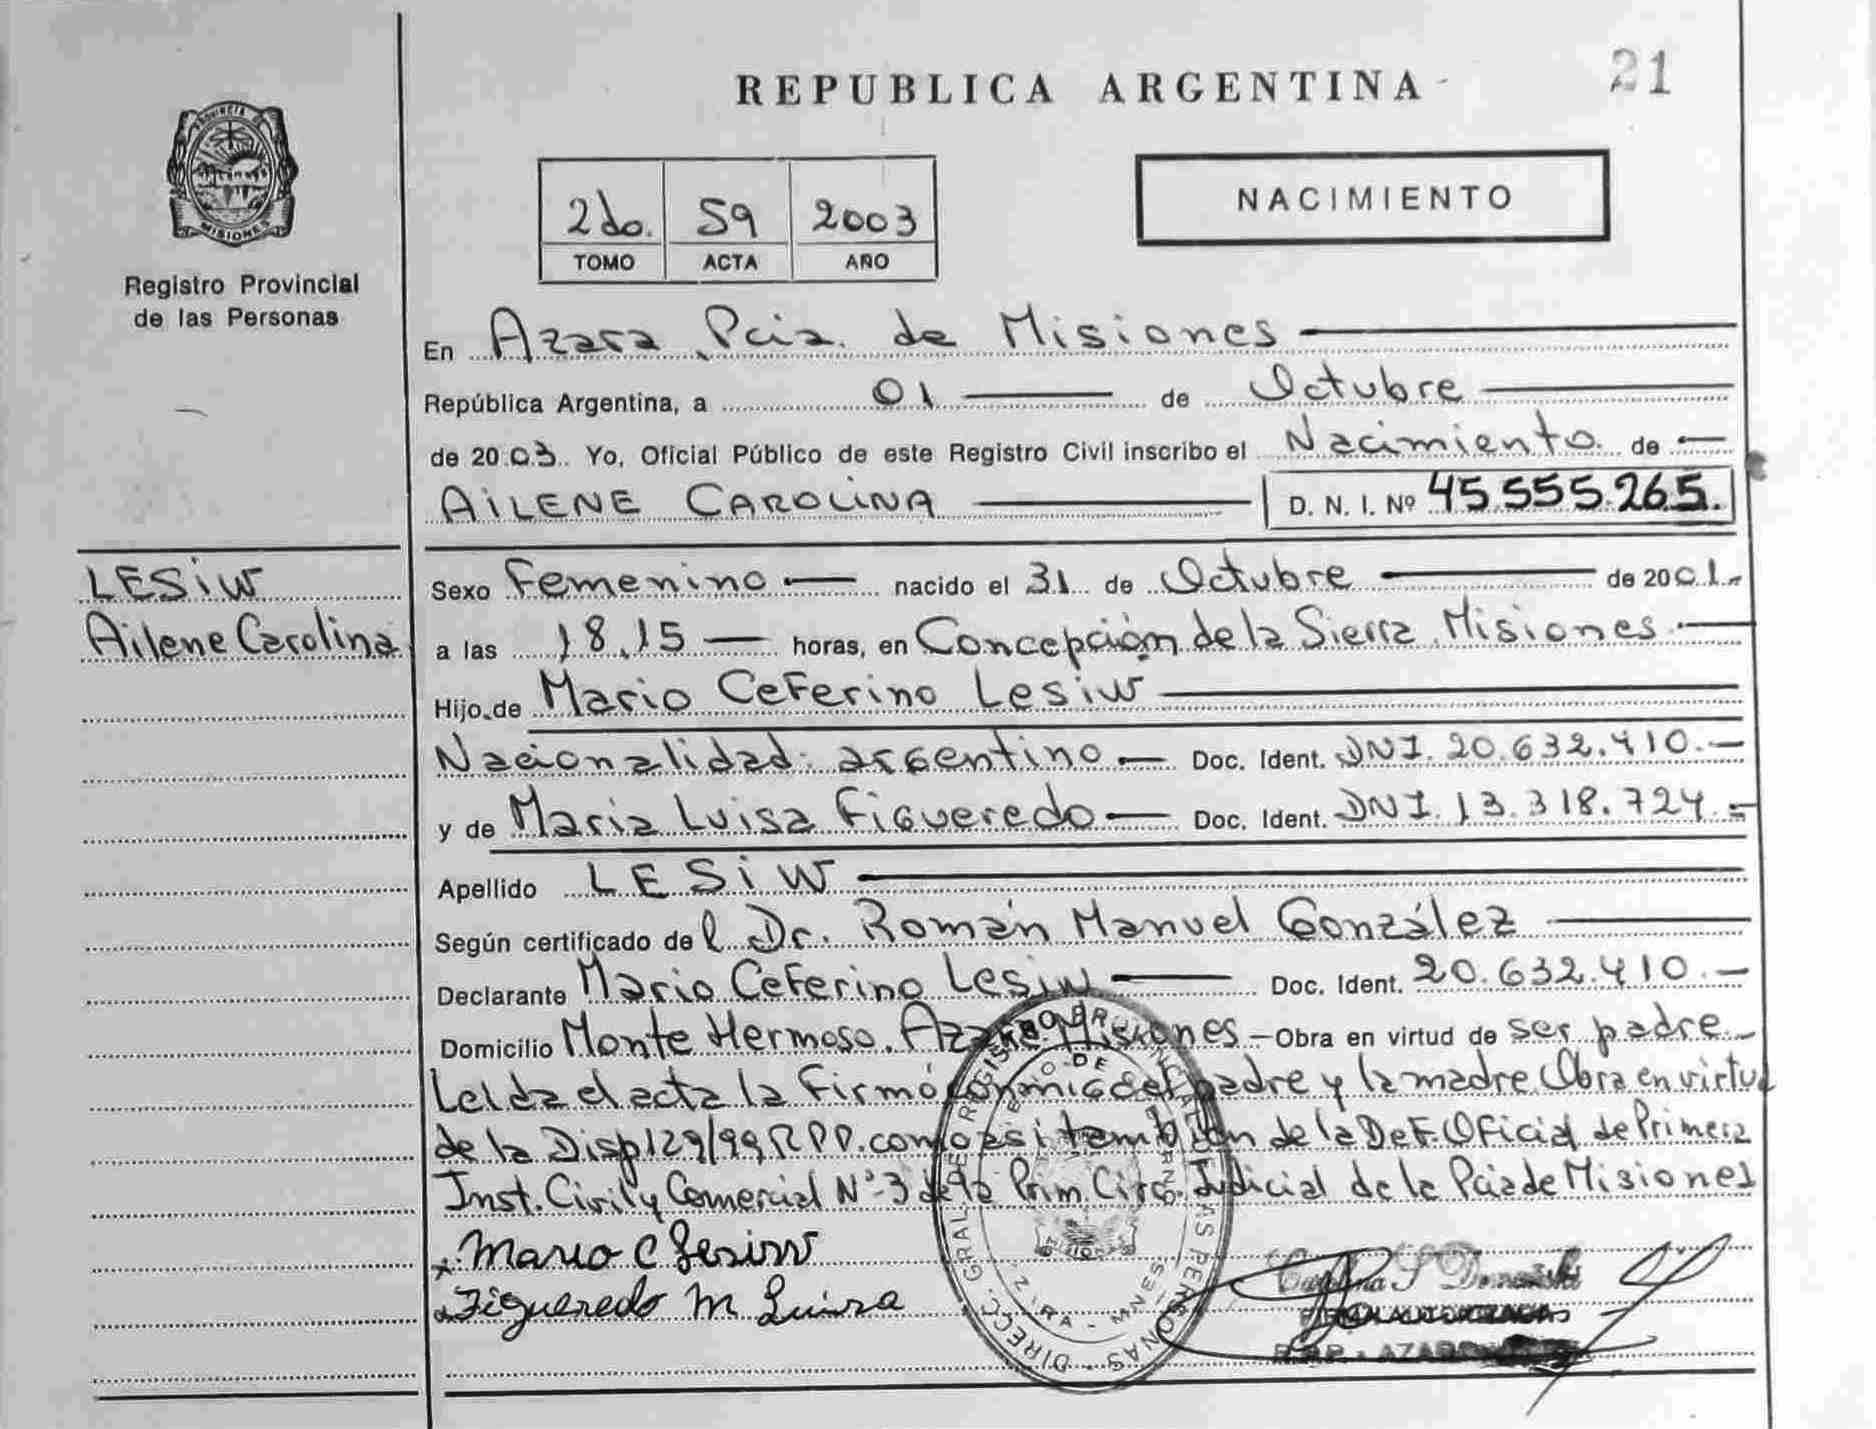 REPUBLICA ARGENTINA
21
PROVINCIA DE
MISIONES
Registro Provincial
de las Personas
2do. 59 2003
TOMO ACTA AÑO
NACIMIENTO
En Azara, Pcia. de Misiones
República Argentina, a 01 de Octubre
de 2003. Yo, Oficial Público de este Registro Civil inscribo el Nacimiento de
AiLENE CAROLINA D. N. I. Nº 45.555.265.
LESiW
Ailene Carolina
Sexo Femenino nacido el 31 de Octubre de 2001.
a las 18,15 horas, en Concepción de la Sierra, Misiones
Hijo de Mario Ceferino Lesiw
Nacionalidad: argentino Doc. Ident. DNI. 20.632.410.
y de Maria Luisa Figueredo Doc. Ident. DNI. 13.318.724.
Apellido LESiW
Según certificado del Dr. Román Manuel González
Declarante Mario Ceferino Lesiw Doc. Ident. 20.632.410.
Domicilio Monte Hermoso. Azara. Misiones Obra en virtud de ser padre.
Leída el acta la firmó conmigo el padre y la madre. Obra en virtud
de la Disp 129/99 R.P.P. como así también de la Def. Oficial de Primera
Inst. Civil y Comercial Nº 3 de la Prim. Circ. Judicial de la Pcia de Misiones
Mario C Lesiw
Figueredo M Luisa
DIRECC. GRAL. DE REGISTRO PROVINCIAL DE LAS PERSONAS
Carolina S
R.P.P. - AZARA